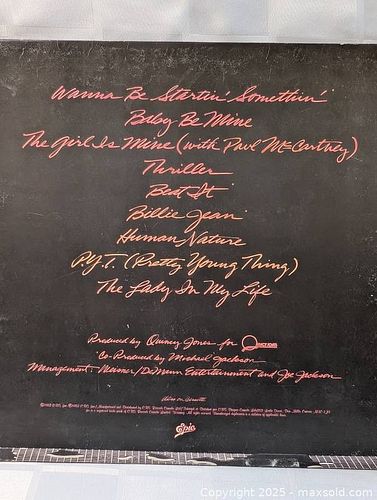 Wanna Be Startin' Somethin'
Baby Be Mine
The Girl Is Mine (with Paul McCartney)
Thriller
Beat It
Billie Jean
Human Nature
P.Y.T. (Pretty Young Thing)
The Lady In My Life
Produced by Quincy Jones for
Co-Produced by Michael Jackson
Management: Weisner/DeMann Entertainment and Joe Jackson
Also on Cassette
Epic
Copyright 2025 - maxsold.com